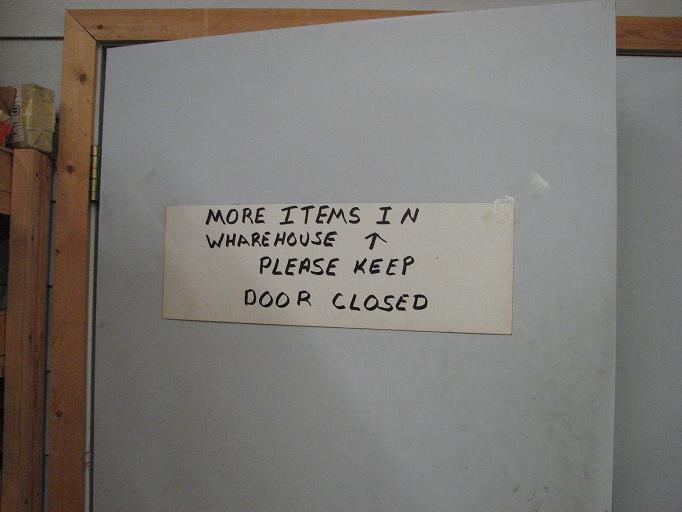 MORE ITEMS IN
WHAREHOUSE ↑
PLEASE KEEP
DOOR CLOSED